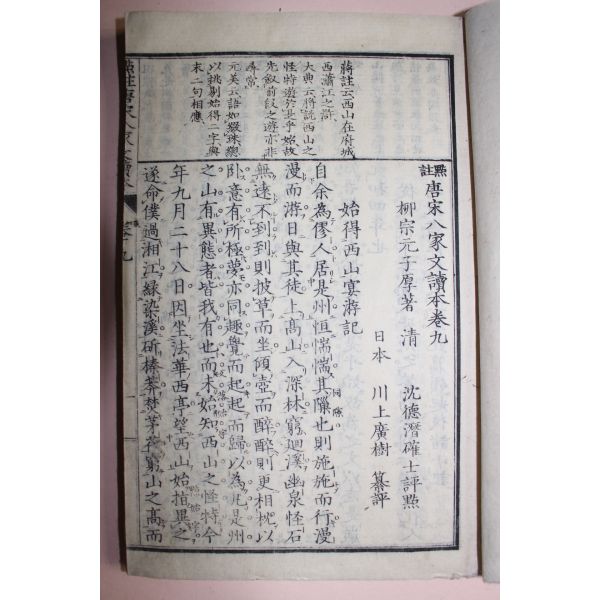 點註唐宋八家文讀本卷九
柳宗元子厚著 清 沈德潛確士評點
日本 川上廣樹 纂評
始得西山宴游記
自余為僇人居是州恒惴慄其隟也則施施而行漫
漫而游日與其徒上髙山入深林窮迴溪幽泉怪石
無遠不到到則披草而坐傾壺而醉醉則更相枕以
臥意有所極夢亦同趣覺而起起而歸以為凡是州
之山有異態者皆我有也而未始知西山之怪特今
年九月二十八日因坐法華西亭望西山始指異之
遂命僕過湘江緣染溪斫榛莽焚茅茷窮山之髙而
蔣註云西山在府城
西瀟江之滸
大典云將説西山之
怪特遊於是乎始故
先叙前段之遊亦非
尋常
元美云語如綴珠
以挑剔始得二字與
末二句相應
點註唐宋八家文讀本
卷之九